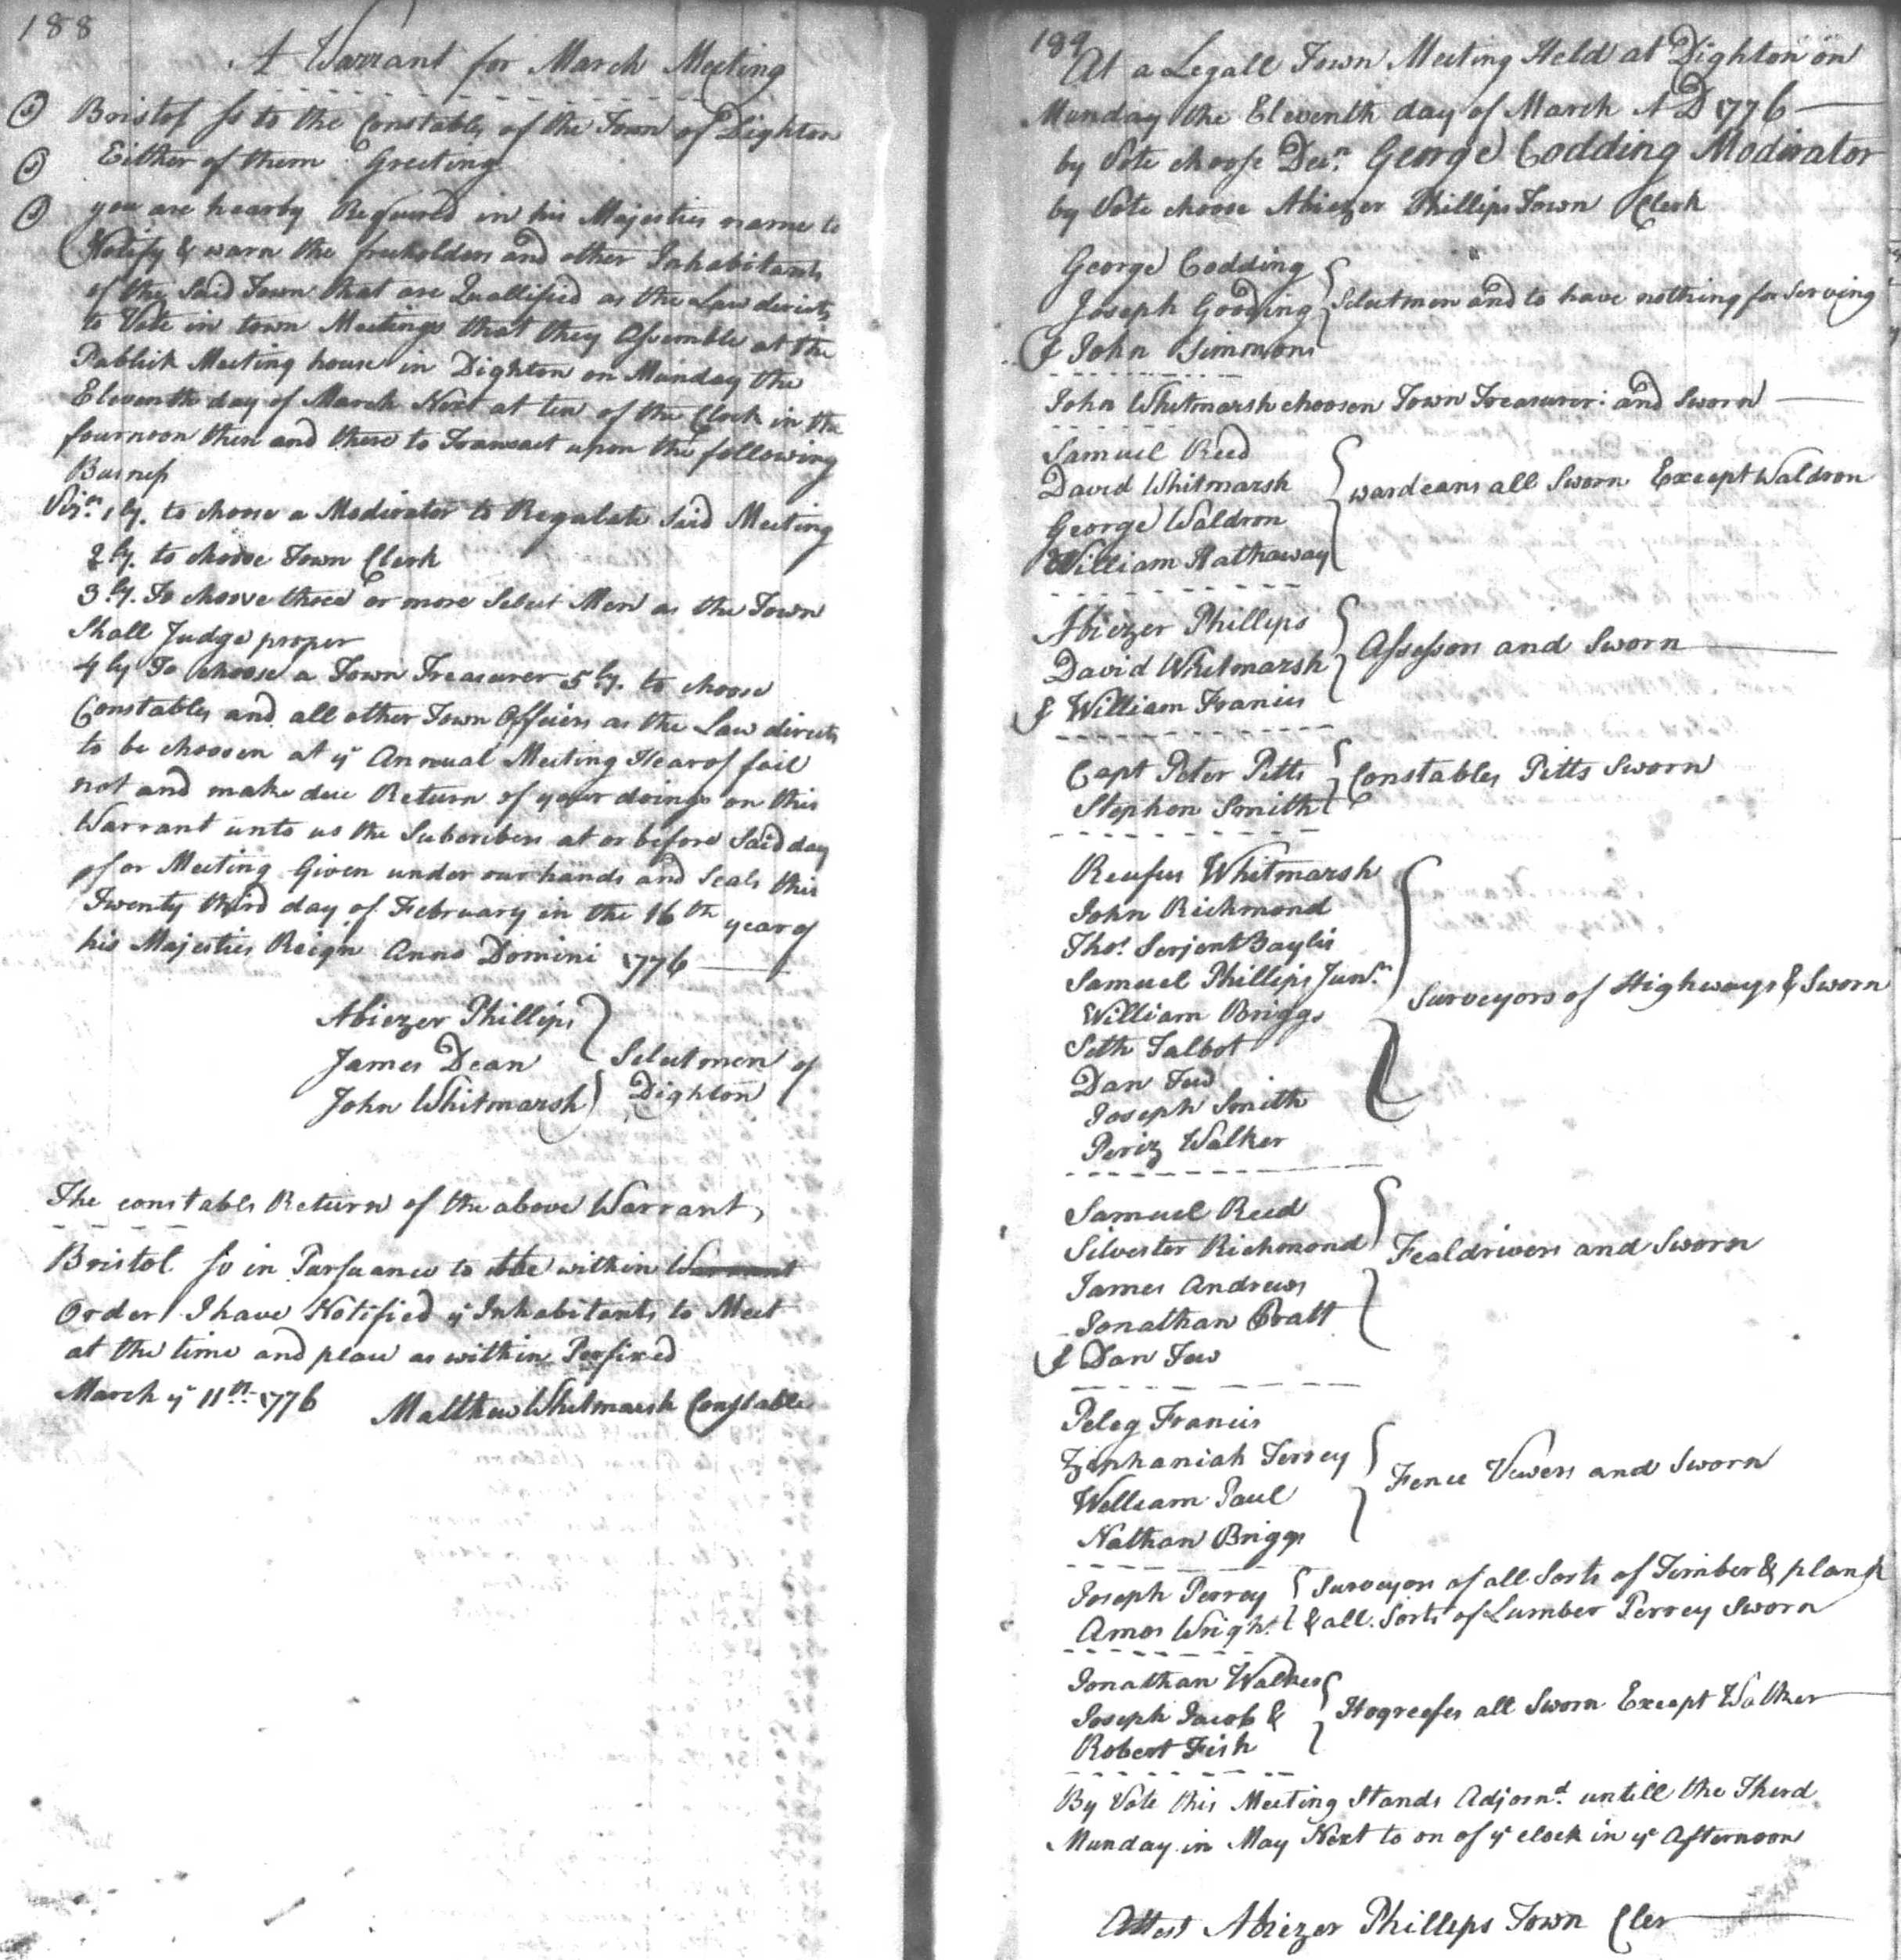 188
A Warrant for March Meeting
Bristol ss to the Constables of the Town of Dighton
Either of them Greeting
you are hearby Required in his Majesties name to
Notify & warn the freeholders and other Inhabitants
of the Said Town that are Quallified as the Law directs
to Vote in town Meetings that they Assemble at the
Publick Meeting house in Dighton on Munday the
Eleventh day of March Next at ten of the Clock in the
fournoon then and there to Transact upon the following
Busness
Viz. 1ly. to choose a Moderator to Regulate Said Meeting
2ly. to choose Town Clerk
3ly. To choose three or more Select Men as the Town
Shall Judge proper
4ly To Choose a Town Treasurer 5ly. to choose
Constables and all other Town Officers as the Law directs
to be choosen at ye Annual Meeting Hearof fail
not and make due Return of your doings on this
Warrant unto us the Subcribers at or before Said day
of or Meeting Given under our hands and Seals this
Twenty third day of February in the 16th year of
his Majesties Reign Anno Domini 1776
Abiezer Phillips
James Dean Selectmen of
John Whitmarsh Dighton
The constables Return of the above Warrant
Bristol ss in Pursuance to the within Warrant
Order I have Notified ye Inhabitants to Meet
at the time and place as within Perfixed
March ye 11th 1776 Matthew Whitmarsh Constable
189
At a Legall Town Meeting Held at Dighton on
Munday the Eleventh day of March A D 1776
by Vote choose Dean George Codding Moderator
by Vote choose Abiezer Phillips Town Clerk
George Codding
Joseph Gooding Selectmen and to have nothing for Serving
& John Simmons
John Whitmarsh choosen Town Treasurer: and Sworn
Samuel Reed
David Whitmarsh wardeans all Sworn Except Waldron
George Waldron
William Hathaway
Abiezer Phillips
David Whitmarsh Assessors and Sworn
& William Francis
Capt Peter Pitts Constables Pitts Sworn
Stephen Smith
Reufus Whitmarsh
John Richmond
Thos. Serjent Baylis
Samuel Phillips Junr.
William Briggs Surveyors of Highways & Sworn
Seth Talbot
Dan Few
Joseph Smith
Periz Walker
Samuel Reed
Silvester Richmond Fealdrivers and Sworn
James Andrews
Jonathan Pratt
& Dan Few
Peleg Francis
Zephaniah Terrey
William Paul Fence Vewers and Sworn
Nathan Briggs
Joseph Perrey Surveyors of all Sorts of Timber & plank
Amos Wrigh. & all Sorts of Lumber Perrey Sworn
Jonathan Walker
Joseph Jacob & Hogreefes all Sworn Except Walker
Robert Fish
By Vote this Meeting Stands Adjornd. untill the Therd
Munday in May Next to on of ye clock in ye Afternoon
Attest Abiezer Phillips Town Cler